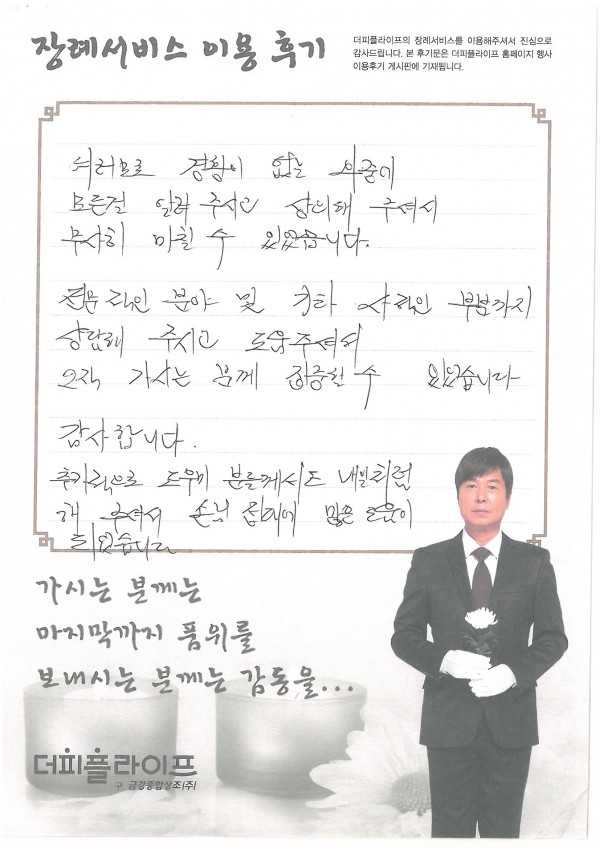 장례서비스 이용 후기
더피플라이프의 장례서비스를 이용해주셔서 진심으로
감사드립니다. 본 후기문은 더피플라이프 홈페이지 행사
이용후기 게시판에 기재됩니다.
여러모로 경황이 없는 와중에
모든걸 알려 주시고 상의해 주셔서
무사히 마칠 수 있었습니다.
전문적인 분야 및 기타 사적인 부분까지
상담해 주시고 도움주셔서
오직 가시는 분께 집중할 수 있었습니다
감사합니다.
추가적으로 도우미 분들께서도 내일처럼
해 주셔서 손님 접대에 많은 도움이
되었습니다
가시는 분께는
마지막까지 품위를
보내시는 분께는 감동을...
더피플라이프
구. 금강종합상조(주)